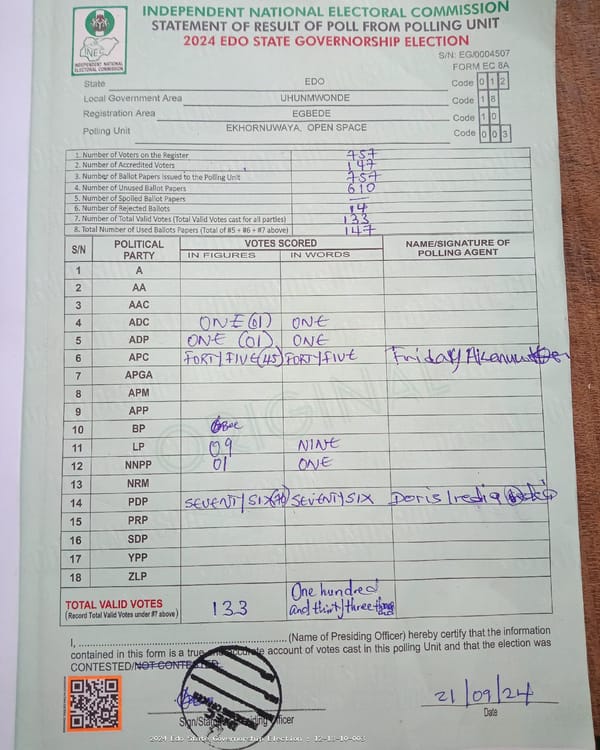 INDEPENDENT NATIONAL ELECTORAL COMMISSION
STATEMENT OF RESULT OF POLL FROM POLLING UNIT
2024 EDO STATE GOVERNORSHIP ELECTION
INEC
INDEPENDENT NATIONAL
ELECTORAL COMMISSION
S/N: EG/0004507
FORM EC 8A
State EDO Code 0 1 2
Local Government Area UHUNMWONDE Code 1 8
Registration Area EGBEDE Code 1 0
Polling Unit EKHORNUWAYA, OPEN SPACE Code 0 0 3
1. Number of Voters on the Register 757
2. Number of Accredited Voters 147
3. Number of Ballot Papers Issued to the Polling Unit 757
4. Number of Unused Ballot Papers 610
5. Number of Spoiled Ballot Papers —
6. Number of Rejected Ballots 14
7. Number of Total Valid Votes (Total Valid Votes cast for all parties) 133
8. Total Number of Used Ballots Papers (Total of #5 + #6 + #7 above) 147
S/N POLITICAL PARTY VOTES SCORED NAME/SIGNATURE OF POLLING AGENT
IN FIGURES IN WORDS
1 A
2 AA
3 AAC
4 ADC ONE (01) ONE
5 ADP ONE (01) ONE
6 APC FORTY FIVE (45) FORTY FIVE Friday
7 APGA
8 APM
9 APP
10 BP
11 LP 09 NINE
12 NNPP 01 ONE
13 NRM
14 PDP SEVENTY SIX (76) SEVENTY SIX Doris Iredia
15 PRP
16 SDP
17 YPP
18 ZLP
ORIGINAL
TOTAL VALID VOTES 133 One hundred
(Record Total Valid Votes under #7 above) and thirty three
I, .......... (Name of Presiding Officer) hereby certify that the information
contained in this form is a true and accurate account of votes cast in this polling Unit and that the election was
CONTESTED/NOT CONTESTED.
21/09/24
Sign/Stamp Presiding Officer Date
2024 Edo State Governorship Election : 12-18-10-003